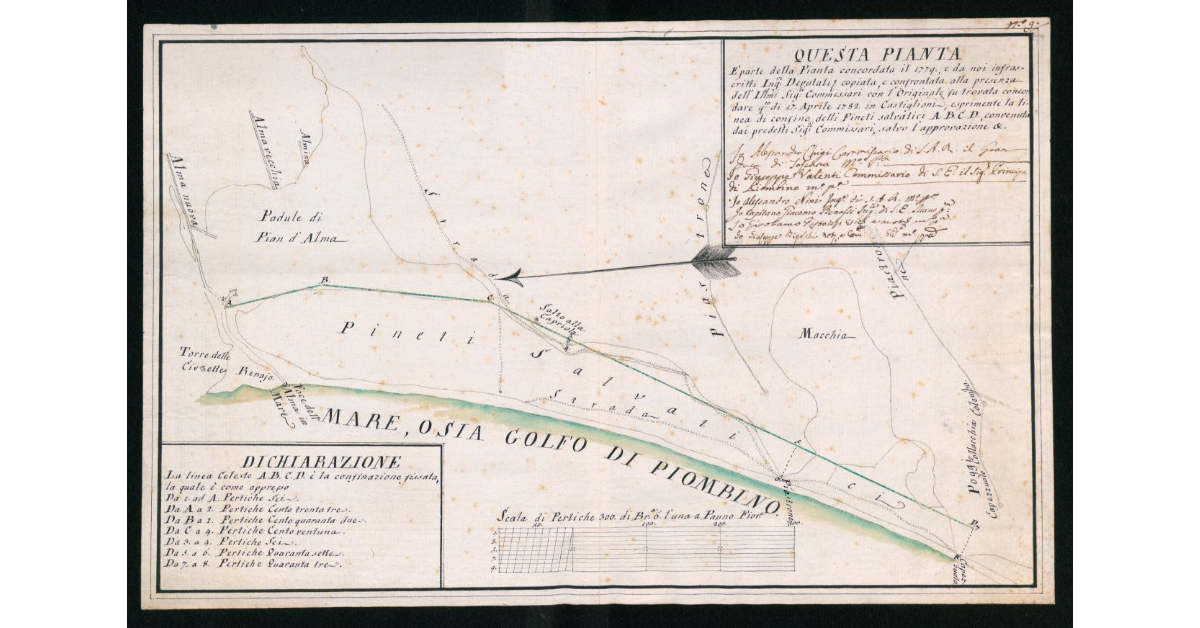 N.º 9:
QUESTA PIANTA
E parte della Pianta concordata il 1779. e da noi infras-
critti Ing. Deputati copiata, e confrontata alla presenza
dell' Illmi. Sig. Commissari con l'Originale fu trovata concor
dare q.to dì 17. Aprile 1782. in Castiglioni, esprimente la li-
nea di confino delli Pineti salvatici A. B. C. D. convenuta
dai predetti Sig. Commissari, salvo l'approvazione &.
Io Alessandro Chigi Commissario di S. A. R. il Gran
Duca di Toscana
Io Giuseppe Valenti Commissario di S. E. il Sig. Principe
di Piombino
Io Alessandro Nini Ing. di S. A. R.
Io Capitano Giacomo
Io Girolamo
Io Giuseppe
Alma nuova
Alma vecchia
Almina
Padule di
Pian d'Alma
Strada
Piastrone
Piastrone
A.
B.
C.
Salto alla
Capriola
Pineti Salvatici
Macchia
Strada
Torre delle
Civette
Renajo
Foce dell'
Alma in
Mare
MARE, O SIA GOLFO DI PIOMBINO.
Piastrone
Pogg. Collacchia
Colombo
Capezzuolo
D.
DICHIARAZIONE
La linea Celeste A. B. C. D. è la confinazione fissata,
la quale è come appresso
Da 1. ad A. Pertiche Sei.
Da A a 2. Pertiche Cento trenta tre.
Da B a 2. Pertiche Cento quaranta due.
Da C a 4. Pertiche Cento ventuna.
Da 3. a 4. Pertiche Sei.
Da 5. a 6. Pertiche Quaranta sette.
Da 7. a 8. Pertiche Quaranta tre.
Scala di Pertiche 300. di Br. 6. l'una a Panno Fior.
100. 200. 300.